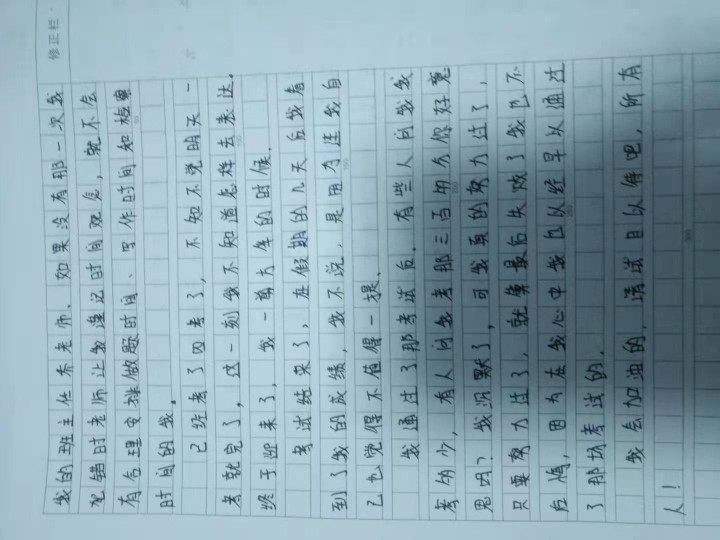 修正栏
我的班主任乔老师。如果没有那一次我
犯错时老师让我谨记时间观念，就不会
有合理安排做题时间、写作时间和检察
时间的我。
已经考了四考了，不知不觉明天一
考就完了，这一刻我不知道怎样去表达。
终于迎来了，我一辈大年的时候。
考试结束了，在假期的几天后我看
到了我的成绩，我不说，是用才连我自
己也觉得不值得一提。
我通过了那考试后，有些人问我我
考多少，有人问我考那三百多分你好意
思吗？我沉默了，可我真的努力过了，
只要努力过了，就算最后失败了我也不
后悔，因为在我心中我已以经早以通过
了那场考试的。
我会加油的，请试目以待吧，所有
人！